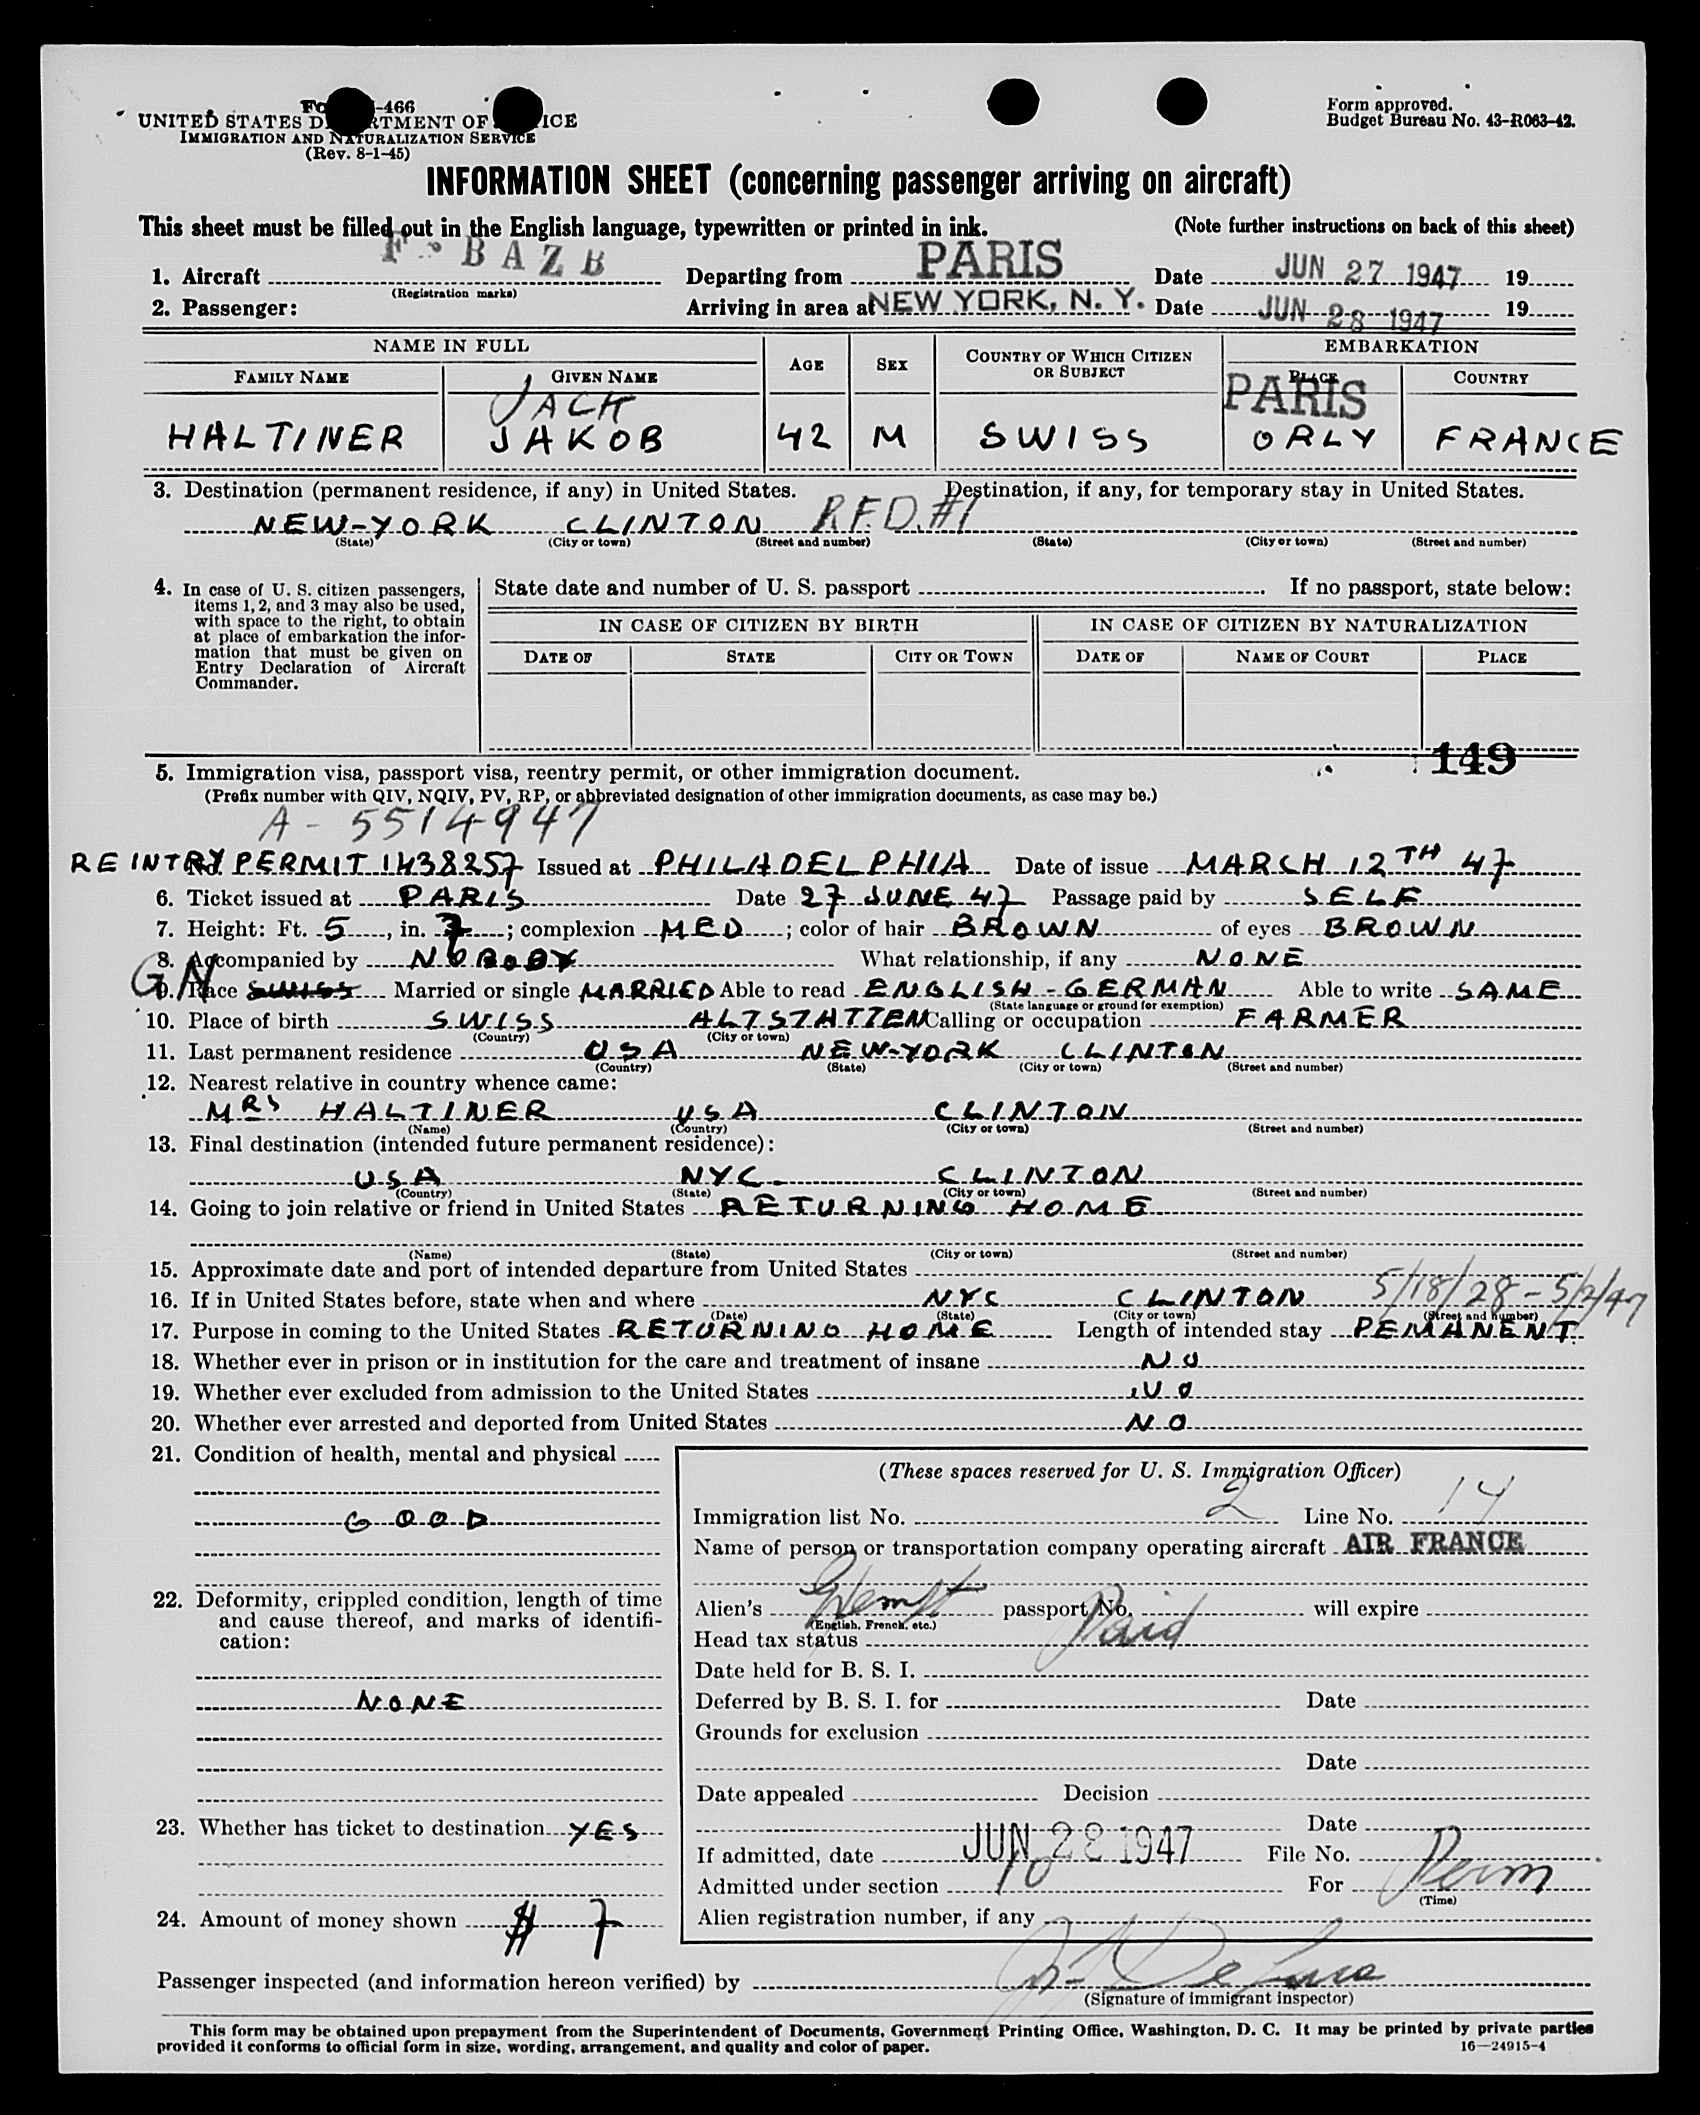 Form -466
UNITED STATES DEPARTMENT OF JUSTICE
IMMIGRATION AND NATURALIZATION SERVICE
(Rev. 8-1-45)
Form approved.
Budget Bureau No. 43-R063-42.
INFORMATION SHEET (concerning passenger arriving on aircraft)
This sheet must be filled out in the English language, typewritten or printed in ink. (Note further instructions on back of this sheet)
1. Aircraft F-BAZB Departing from PARIS Date JUN 27 1947 19
(Registration marks)
2. Passenger: Arriving in area at NEW YORK, N. Y. Date JUN 28 1947 19
NAME IN FULL AGE SEX COUNTRY OF WHICH CITIZEN OR SUBJECT EMBARKATION
FAMILY NAME GIVEN NAME PLACE COUNTRY
JACK PARIS
HALTINER JAKOB 42 M SWISS ORLY FRANCE
3. Destination (permanent residence, if any) in United States. Destination, if any, for temporary stay in United States.
NEW-YORK CLINTON R.F.D. #1
(State) (City or town) (Street and number) (State) (City or town) (Street and number)
4. In case of U. S. citizen passengers, items 1, 2, and 3 may also be used, with space to the right, to obtain at place of embarkation the information that must be given on Entry Declaration of Aircraft Commander.
State date and number of U. S. passport . If no passport, state below:
IN CASE OF CITIZEN BY BIRTH IN CASE OF CITIZEN BY NATURALIZATION
DATE OF STATE CITY OR TOWN DATE OF NAME OF COURT PLACE
149
5. Immigration visa, passport visa, reentry permit, or other immigration document.
(Prefix number with QIV, NQIV, PV, RP, or abbreviated designation of other immigration documents, as case may be.)
A- 5514947
REINTRY PERMIT 1438257 Issued at PHILADELPHIA Date of issue MARCH 12TH 47
6. Ticket issued at PARIS Date 27 JUNE 47 Passage paid by SELF
7. Height: Ft. 5, in. 7; complexion MED; color of hair BROWN of eyes BROWN
8. Accompanied by NOBODY What relationship, if any NONE
GN
9. Race SWISS Married or single MARRIED Able to read ENGLISH-GERMAN Able to write SAME
(State language or ground for exemption)
10. Place of birth SWISS ALTSTATTEN Calling or occupation FARMER
(Country) (City or town)
11. Last permanent residence USA NEW-YORK CLINTON
(Country) (State) (City or town) (Street and number)
12. Nearest relative in country whence came:
MRS HALTINER USA CLINTON
(Name) (Country) (City or town) (Street and number)
13. Final destination (intended future permanent residence):
USA NYC CLINTON
(Country) (State) (City or town) (Street and number)
14. Going to join relative or friend in United States RETURNING HOME
(Name) (State) (City or town) (Street and number)
15. Approximate date and port of intended departure from United States
16. If in United States before, state when and where NYC CLINTON 5/18/28-5/2/47
(Date) (State) (City or town) (Street and number)
17. Purpose in coming to the United States RETURNING HOME Length of intended stay PEMANENT.
18. Whether ever in prison or in institution for the care and treatment of insane NO
19. Whether ever excluded from admission to the United States NO
20. Whether ever arrested and deported from United States NO
21. Condition of health, mental and physical
GOOD
22. Deformity, crippled condition, length of time and cause thereof, and marks of identification:
NONE
23. Whether has ticket to destination YES
24. Amount of money shown $ 7
(These spaces reserved for U. S. Immigration Officer)
Immigration list No. 2 Line No. 14
Name of person or transportation company operating aircraft AIR FRANCE
Alien's passport No. will expire
(English, French, etc.)
Head tax status Paid
Date held for B. S. I.
Deferred by B. S. I. for Date
Grounds for exclusion
Date
Date appealed Decision
Date
If admitted, date JUN 28 1947 File No.
Admitted under section 10 For Perm
(Time)
Alien registration number, if any
Passenger inspected (and information hereon verified) by De Luca
(Signature of immigrant inspector)
This form may be obtained upon prepayment from the Superintendent of Documents, Government Printing Office, Washington, D. C. It may be printed by private parties
provided it conforms to official form in size, wording, arrangement, and quality and color of paper. 16—24915-4